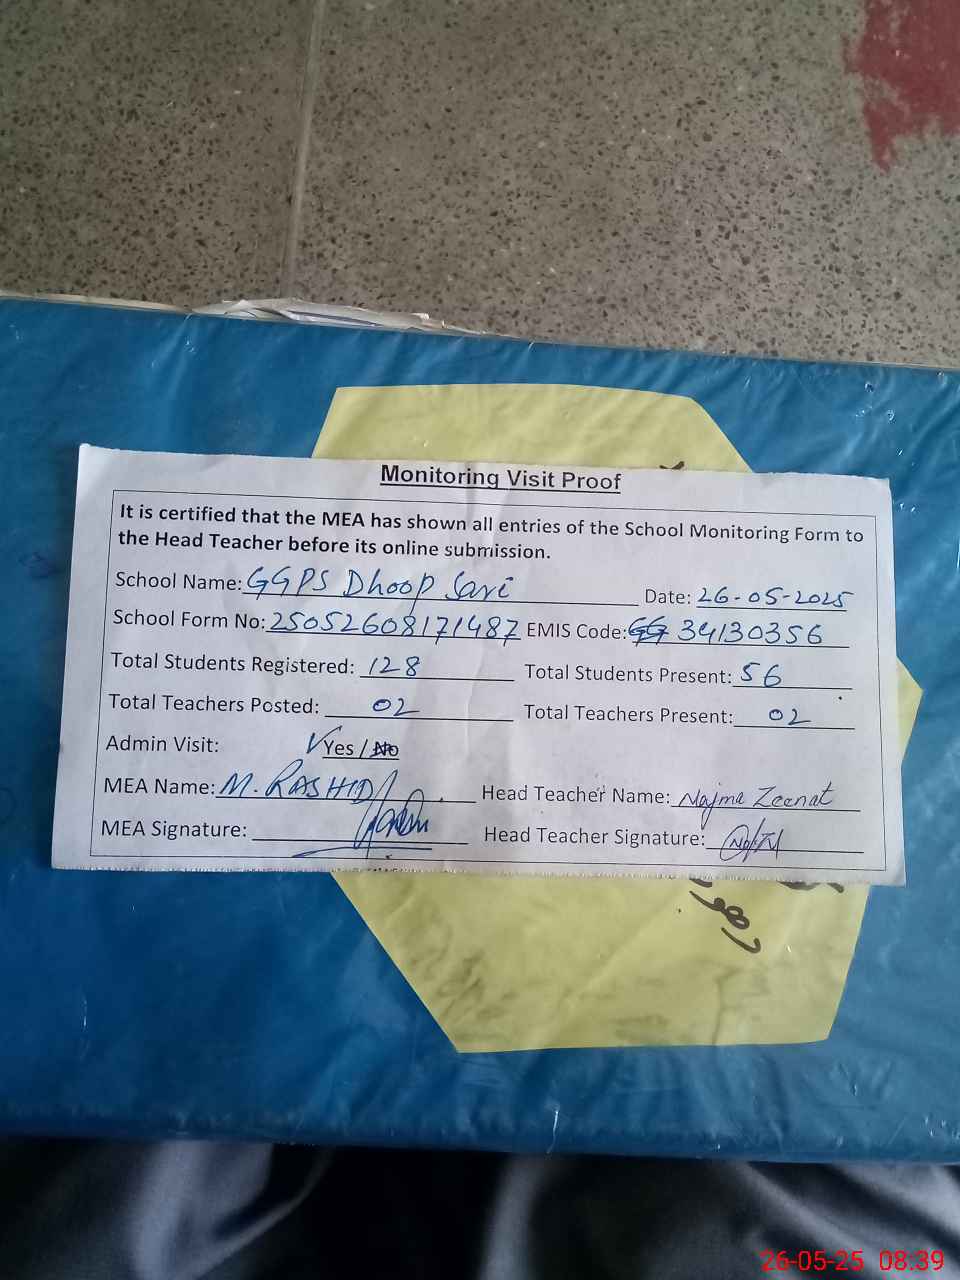 Monitoring Visit Proof
It is certified that the MEA has shown all entries of the School Monitoring Form to
the Head Teacher before its online submission.
School Name: GGPS Dhoop Sari Date: 26-05-2025
School Form No: 25052608171487 EMIS Code: 34130356
Total Students Registered: 128 Total Students Present: 56
Total Teachers Posted: 02 Total Teachers Present: 02
Admin Visit: ✓Yes / No
MEA Name: M. RASHID Head Teacher Name: Najma Zeenat
MEA Signature: Head Teacher Signature:
26-05-25 08:39